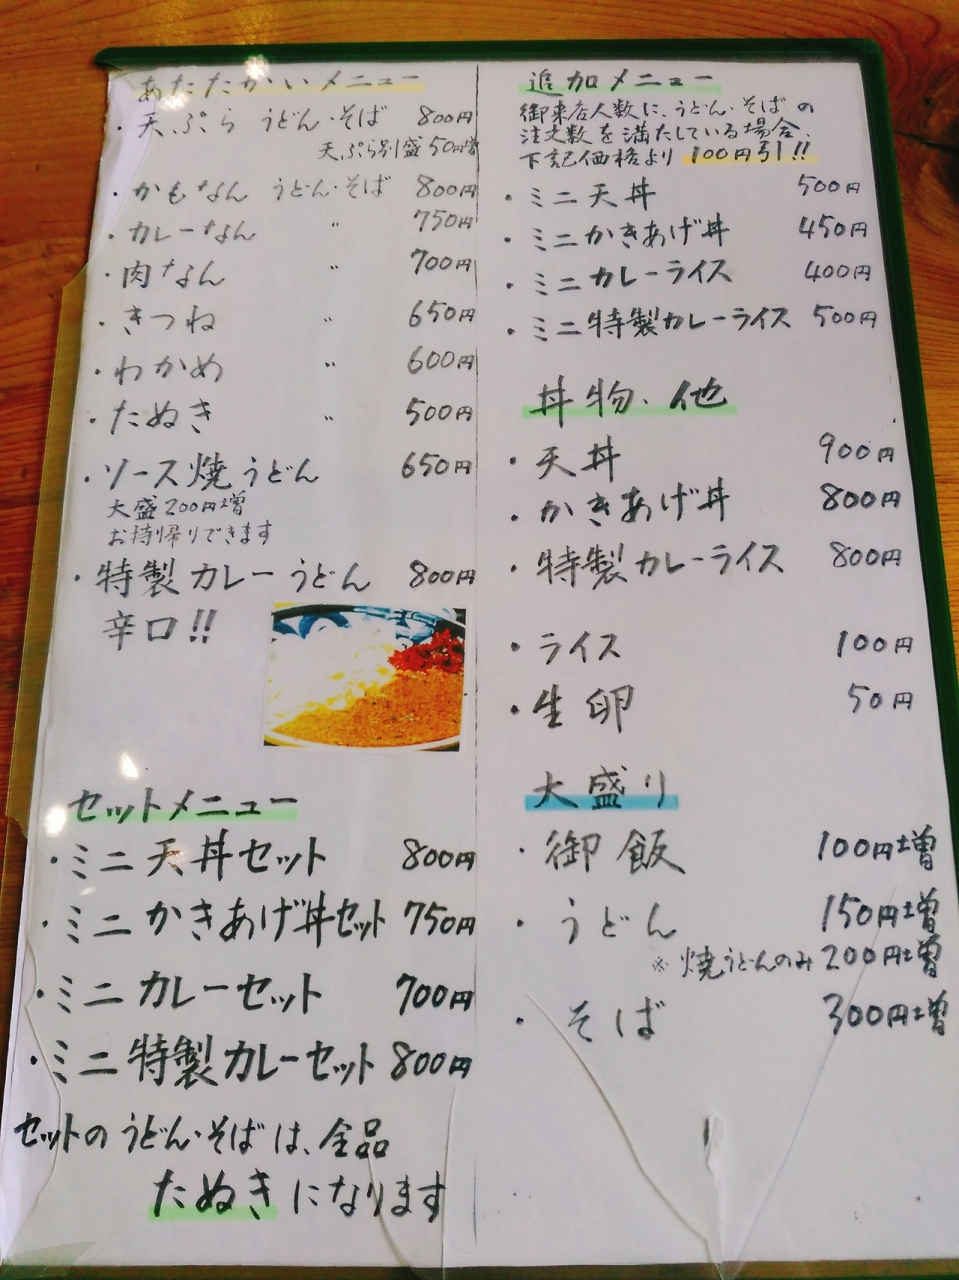 あたたかいメニュー
・天ぷら うどん・そば 800円
天ぷら別盛 50円増
・かもなん うどん・そば 800円
・カレーなん 〃 750円
・肉なん 〃 700円
・きつね 〃 650円
・わかめ 〃 600円
・たぬき 〃 500円
・ソース焼うどん 650円
大盛200円増
お持帰りできます
・特製カレーうどん 800円
辛口!!
セットメニュー
・ミニ天丼セット 800円
・ミニかきあげ丼セット 750円
・ミニカレーセット 700円
・ミニ特製カレーセット 800円
セットのうどん・そばは、全品
たぬきになります
追加メニュー
御来店人数に、うどん・そばの
注文数を満たしている場合、
下記価格より 100円引!!
・ミニ天丼 500円
・ミニかきあげ丼 450円
・ミニカレーライス 400円
・ミニ特製カレーライス 500円
丼物、他
・天丼 900円
・かきあげ丼 800円
・特製カレーライス 800円
・ライス 100円
・生卵 50円
大盛り
・御飯 100円増
・うどん 150円増
※焼うどんのみ 200円増
・そば 300円増